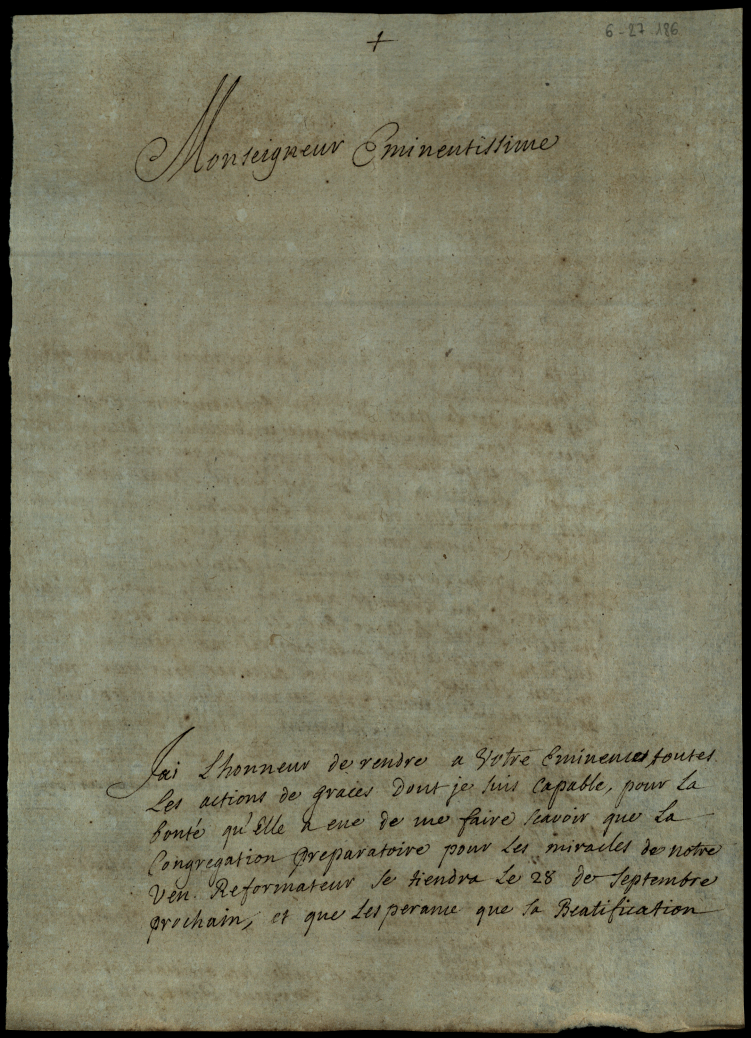 +
6-27.186
Monseigneur Eminentissime
Jai Lhonneur de rendre a Votre Eminence, toutes
Les actions de graces Dont je suis Capable, pour La
bonté qu'Elle a eue de me faire scavoir que La
Congregation preparatoire pour Les miracles de notre
Ven. Reformateur se tiendra Le 28 de Septembre
prochain, et que Lesperame que sa Beatification